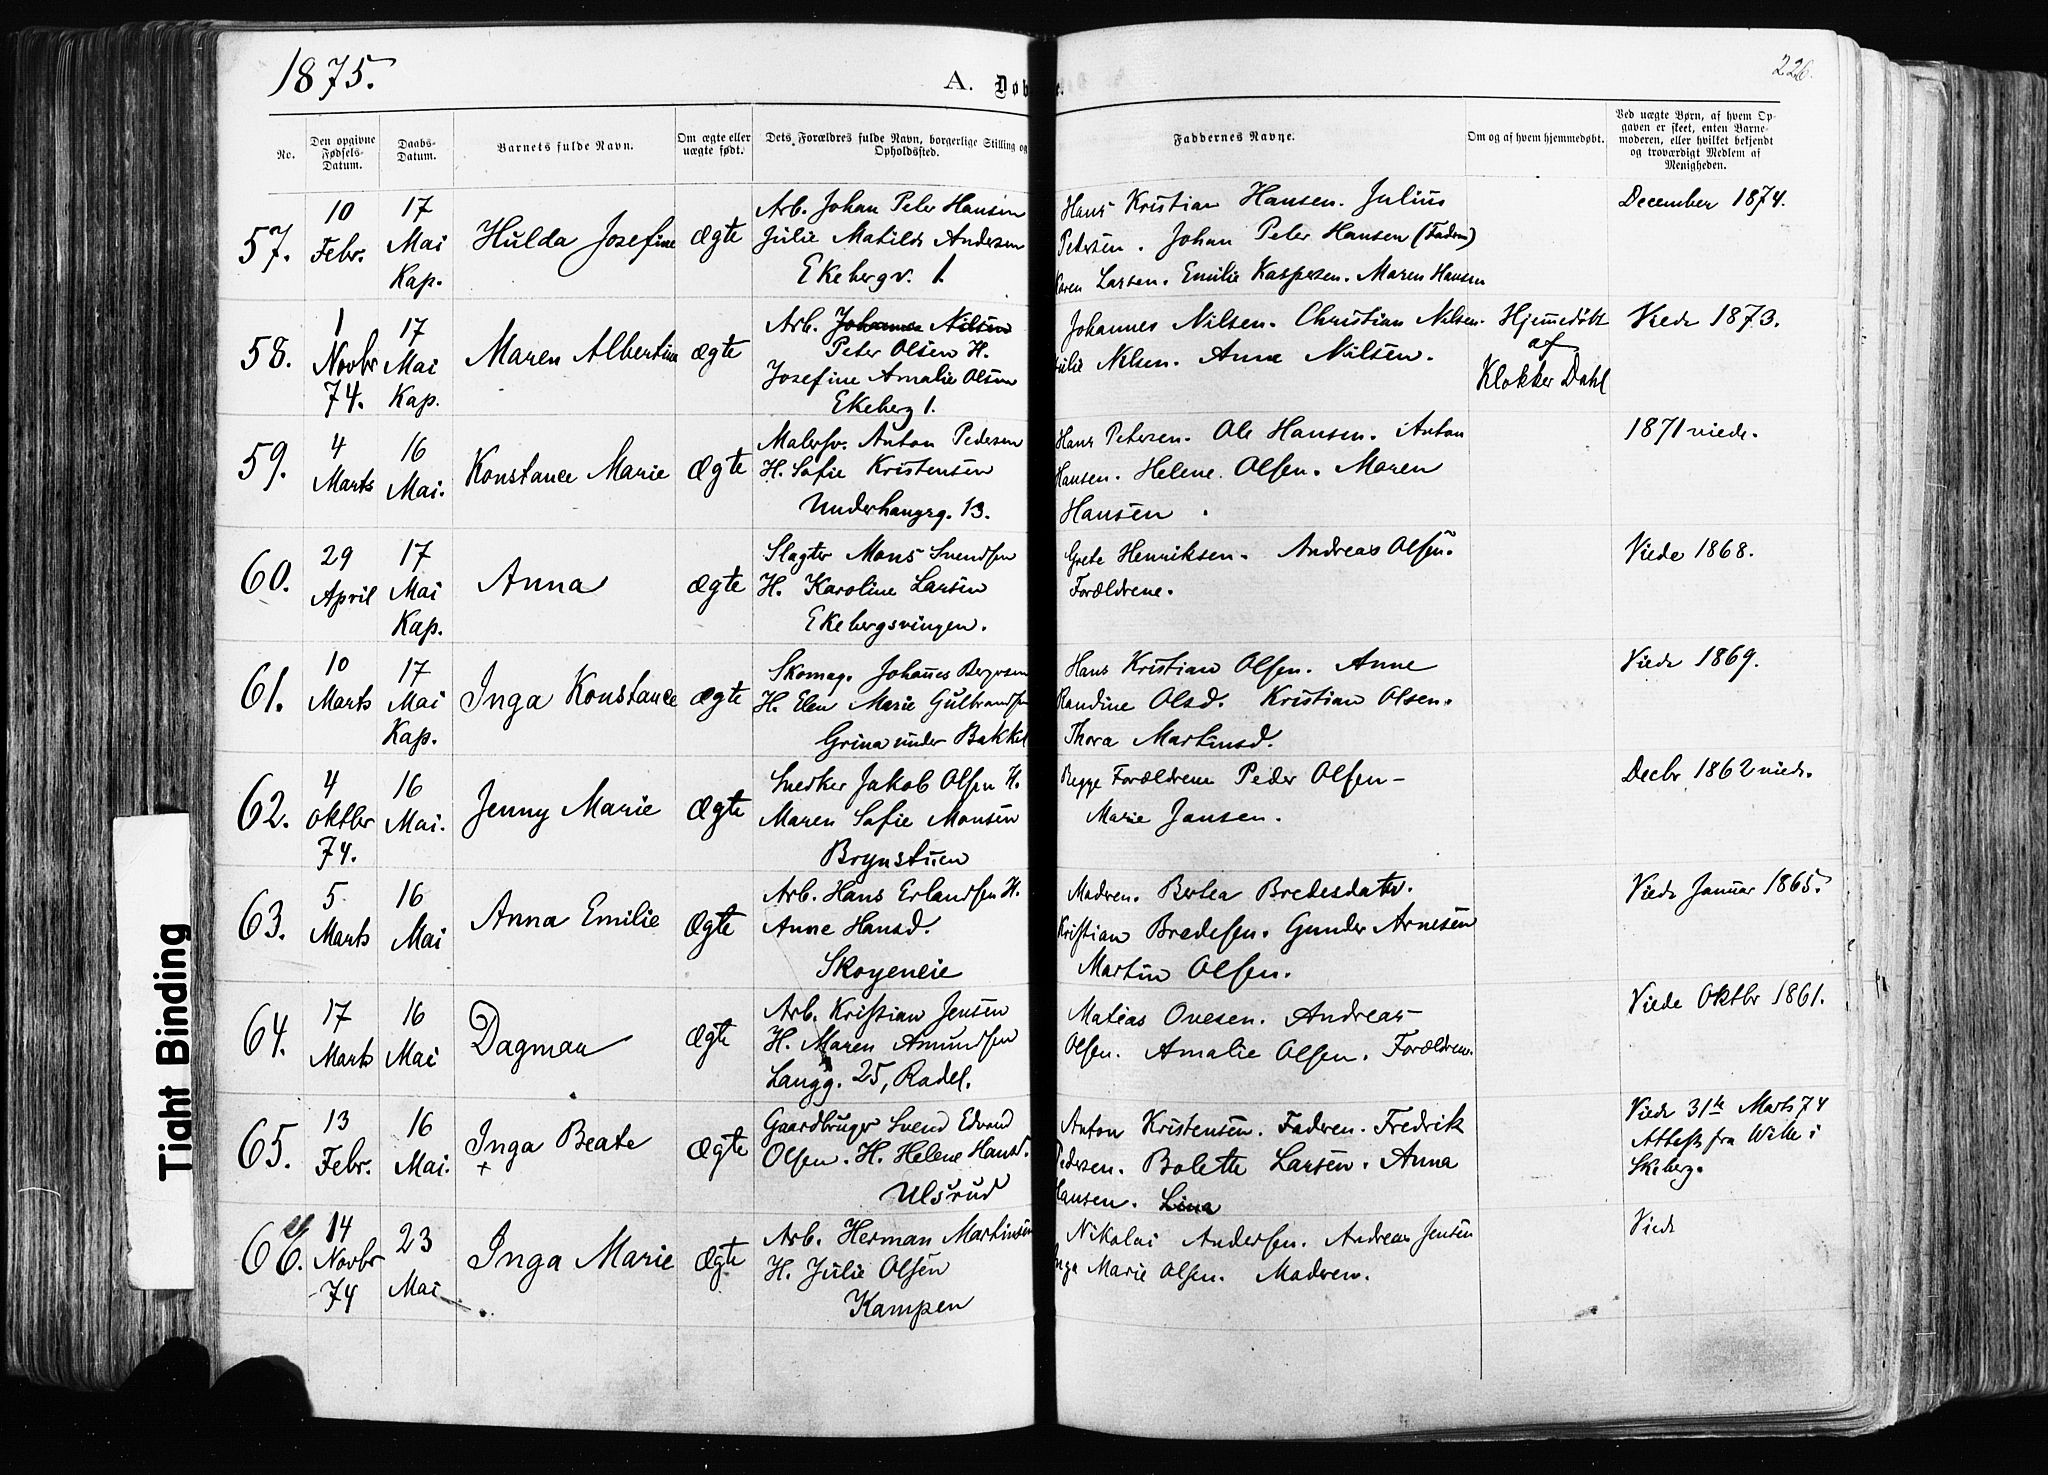 1875.
A. Døb
e.
226.
No.
Den opgivne Fødsels-Datum.
Daabs-Datum.
Barnets fulde Navn.
Om ægte eller uægte født.
Dets Forældres fulde Navn, borgerlige Stilling og Opholdssted.
Faddernes Navne.
Om og af hvem hjemmedøbt.
Ved uægte Børn, af hvem Opgaven er skeet, enten Barnemoderen, eller hvilket bekjendt og troværdigt Medlem af Menigheden.
57.
10 Febr.
17 Mai Kap.
Hulda Josefine
Ægte
Arb. Johan Peter Hansen
Julie Matilde Andersen
Ekebergv. 1.
Hans Kristian Hansen. Julius
Petersen. Johan Peter Hansen (Faderen)
Karen Larsen. Emilie Kaspersen. Maren Hansen
December 1874.
58.
1 Novbr 74.
17 Mai Kap.
Maren Albertine
Ægte
Arb. Johannes Nilsen
Peter Olsen H.
Josefine Amalie Olsen
Ekeberg 1.
Johannes Nilsen. Christian Nilsen.
Julie Nilsen. Anne Nilsen.
Hjemmedøbt
af
Klokker Dahl
Viede 1873.
59.
4 Marts
16 Mai.
Konstance Marie
Ægte
Malersv. Anton Pedersen
H. Sofie Kristensen
Underhaugsg. 13.
Hans Petersen. Ole Hansen. Anton
Hansen. Helene Olsen. Maren
Hansen.
1871 viede.
60.
29 April
17 Mai Kap.
Anna
Ægte
Slagter Mons Svendsen
H. Karoline Larsen
Ekebergsvingen.
Grete Henriksen. Andreas Olsen.
Forældrene.
Viede 1868.
61.
10 Marts
17 Mai Kap.
Inga Konstance
Ægte
Skomag. Johannes Bergersen
H. Elen Marie Gulbrandsen
Grina under Bakkel
Hans Kristian Olsen. Anne
Randine Olsd. Kristian Olsen.
Thora Martinsd.
Viede 1869.
62.
4 Oktbr 74.
16 Mai.
Jenny Marie
Ægte
Snedker Jakob Olsen H.
Maren Sofie Monsen
Brynstuen
Begge Forældrene Peder Olsen-
Marie Jansen.
Decbr 1862 viede.
63.
5 Marts
16 Mai
Anna Emilie
Ægte
Arb. Hans Erlandsen H.
Anne Hansd.
Skoyeneie
Madren. Bertea Bredesdatter.
Kristian Bredesen. Gunder Arnesen
Martin Olsen.
Viede Januar 1865.
64.
17 Marts
16 Mai
Dagmar
Ægte
Arb. Kristian Jensen
H. Maren Amundsen
Langg. 25, Rodel.
Matias Ovesen. Andreas
Olsen. Amalie Olsen. Forældrene.
Viede Oktbr 1861.
65.
13 Febr.
16 Mai.
Inga Beate
+
Ægte
Gaardbruger Svend Edvard
Olsen. H. Helene Hansd.
Ulsrud
Anton Kristensen. Faderen. Fredrik
Pedersen. Bolette Larsen. Anna
Hansen. Lina
Viede 31te Marts 74
Attest fra Wille i
Skeberg.
66.
14 Novbr 74
23 Mai
Inga Marie
Ægte
Arb. Herman Martinsen
H. Julie Olsen
Kampen
Nikolai Andersen. Andreas Jensen
Inga Marie Olsen. Madren.
Viede
Tight Binding